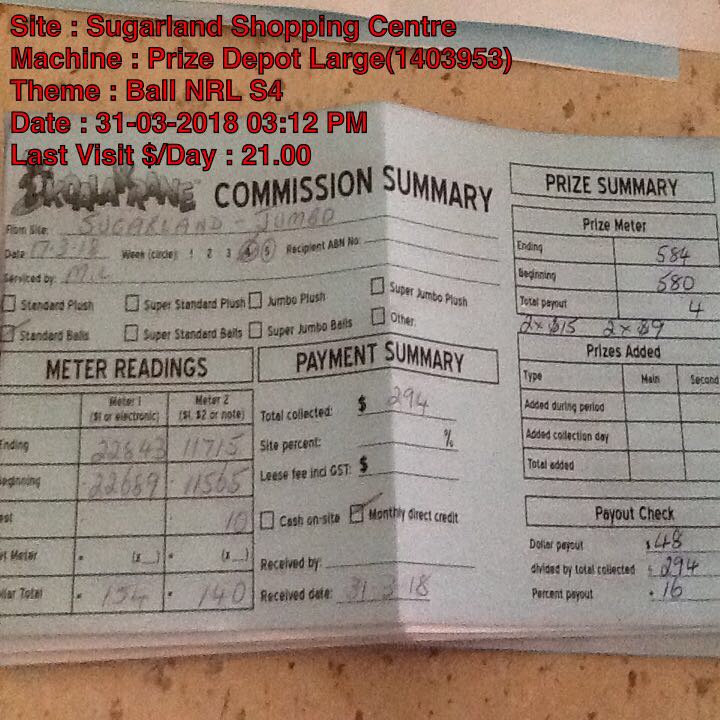 Site : Sugarland Shopping Centre
Machine : Prize Depot Large(1403953)
Theme : Ball NRL S4
Date : 31-03-2018 03:12 PM
Last Visit $/Day : 21.00
COMMISSION SUMMARY
From Site: SUGARLAND - JUMBO
Date 17-3-18 Week (circle) 1 2 3 4 5 Recipient ABN No:
Serviced by: M.L
Standard Plush Super Standard Plush Jumbo Plush Super Jumbo Plush
Standard Balls Super Standard Balls Super Jumbo Balls Other:
METER READINGS
Meter 1 Meter 2
($1 or electronic) ($1, $2 or note)
Ending 22843 11715
eginning 22689 11565
est 10
t Meter (x ) (x )
llar Total 154 140
PAYMENT SUMMARY
Total collected: $ 294
Site percent: %
Lease fee incl GST: $
Cash on-site Monthly direct credit
Received by:
Received date: 31-3-18
PRIZE SUMMARY
Prize Meter
Ending 584
Beginning 580
Total payout 4
2x $15 2x $9
Prizes Added
Type Main Second
Added during period
Added collection day
Total added
Payout Check
Dollar payout $48
divided by total collected 294
Percent payout 16